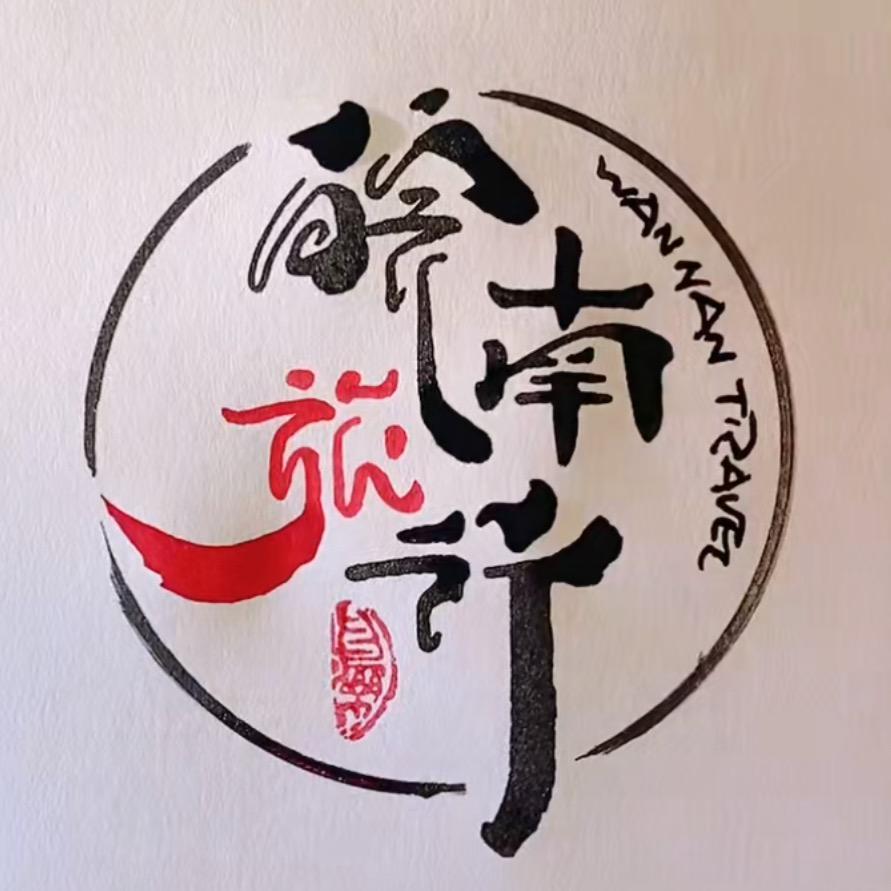 皖南
旅行
WAN NAN TRAVEL